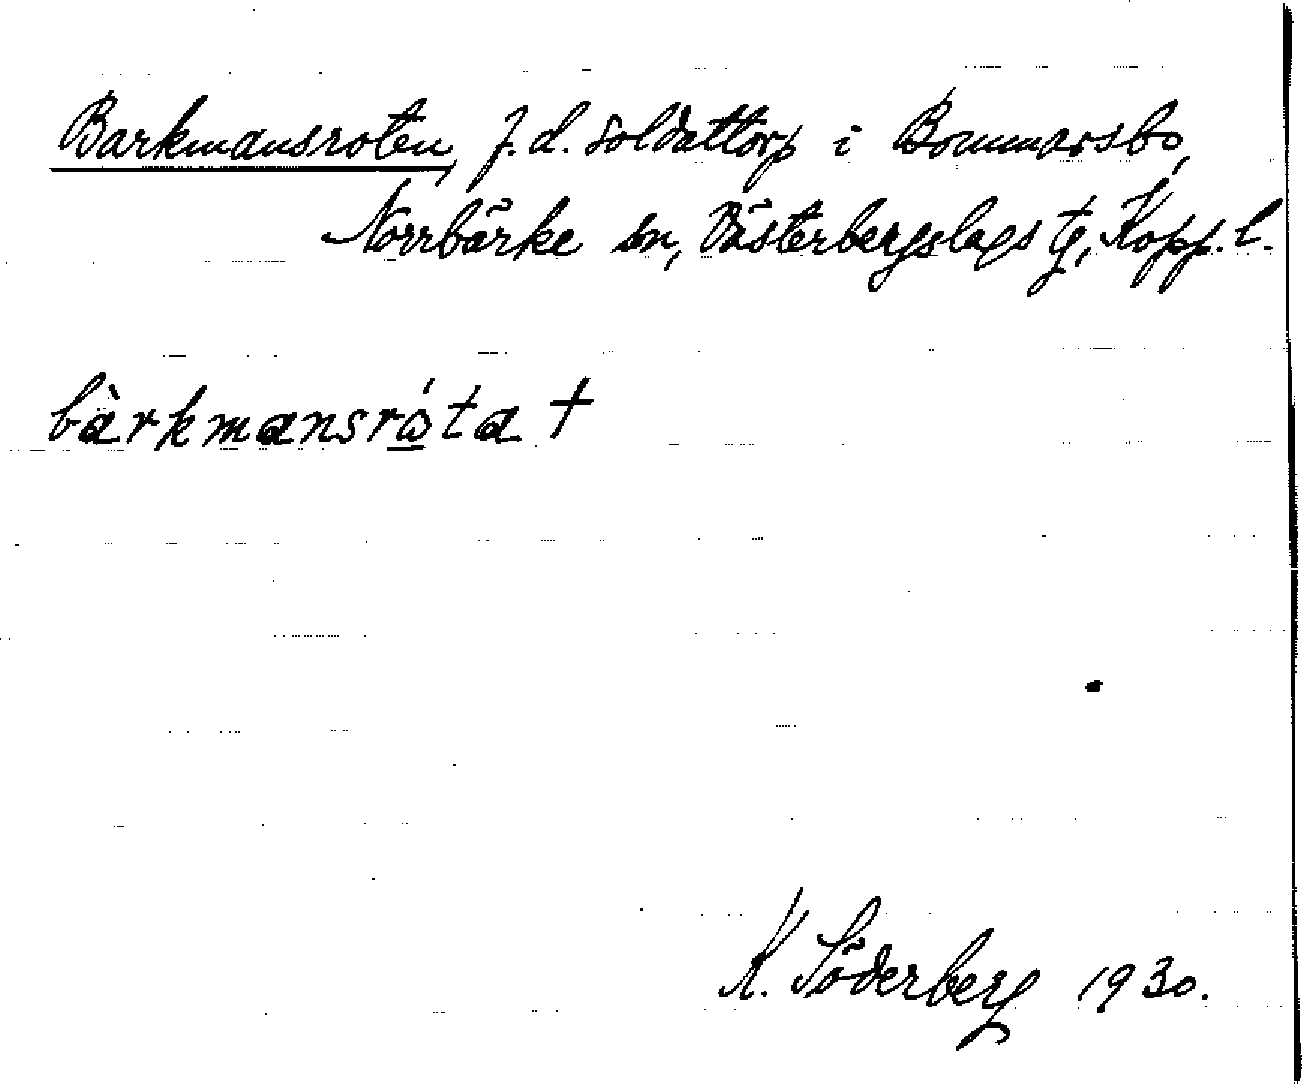 Barkmansroten, f.d. soldattorp i Bommarsbo,
Norrbärke sn, Västerbergslags tg, Kopp. l.
bàrkmansró̲ta †
K. Söderberg 1930.